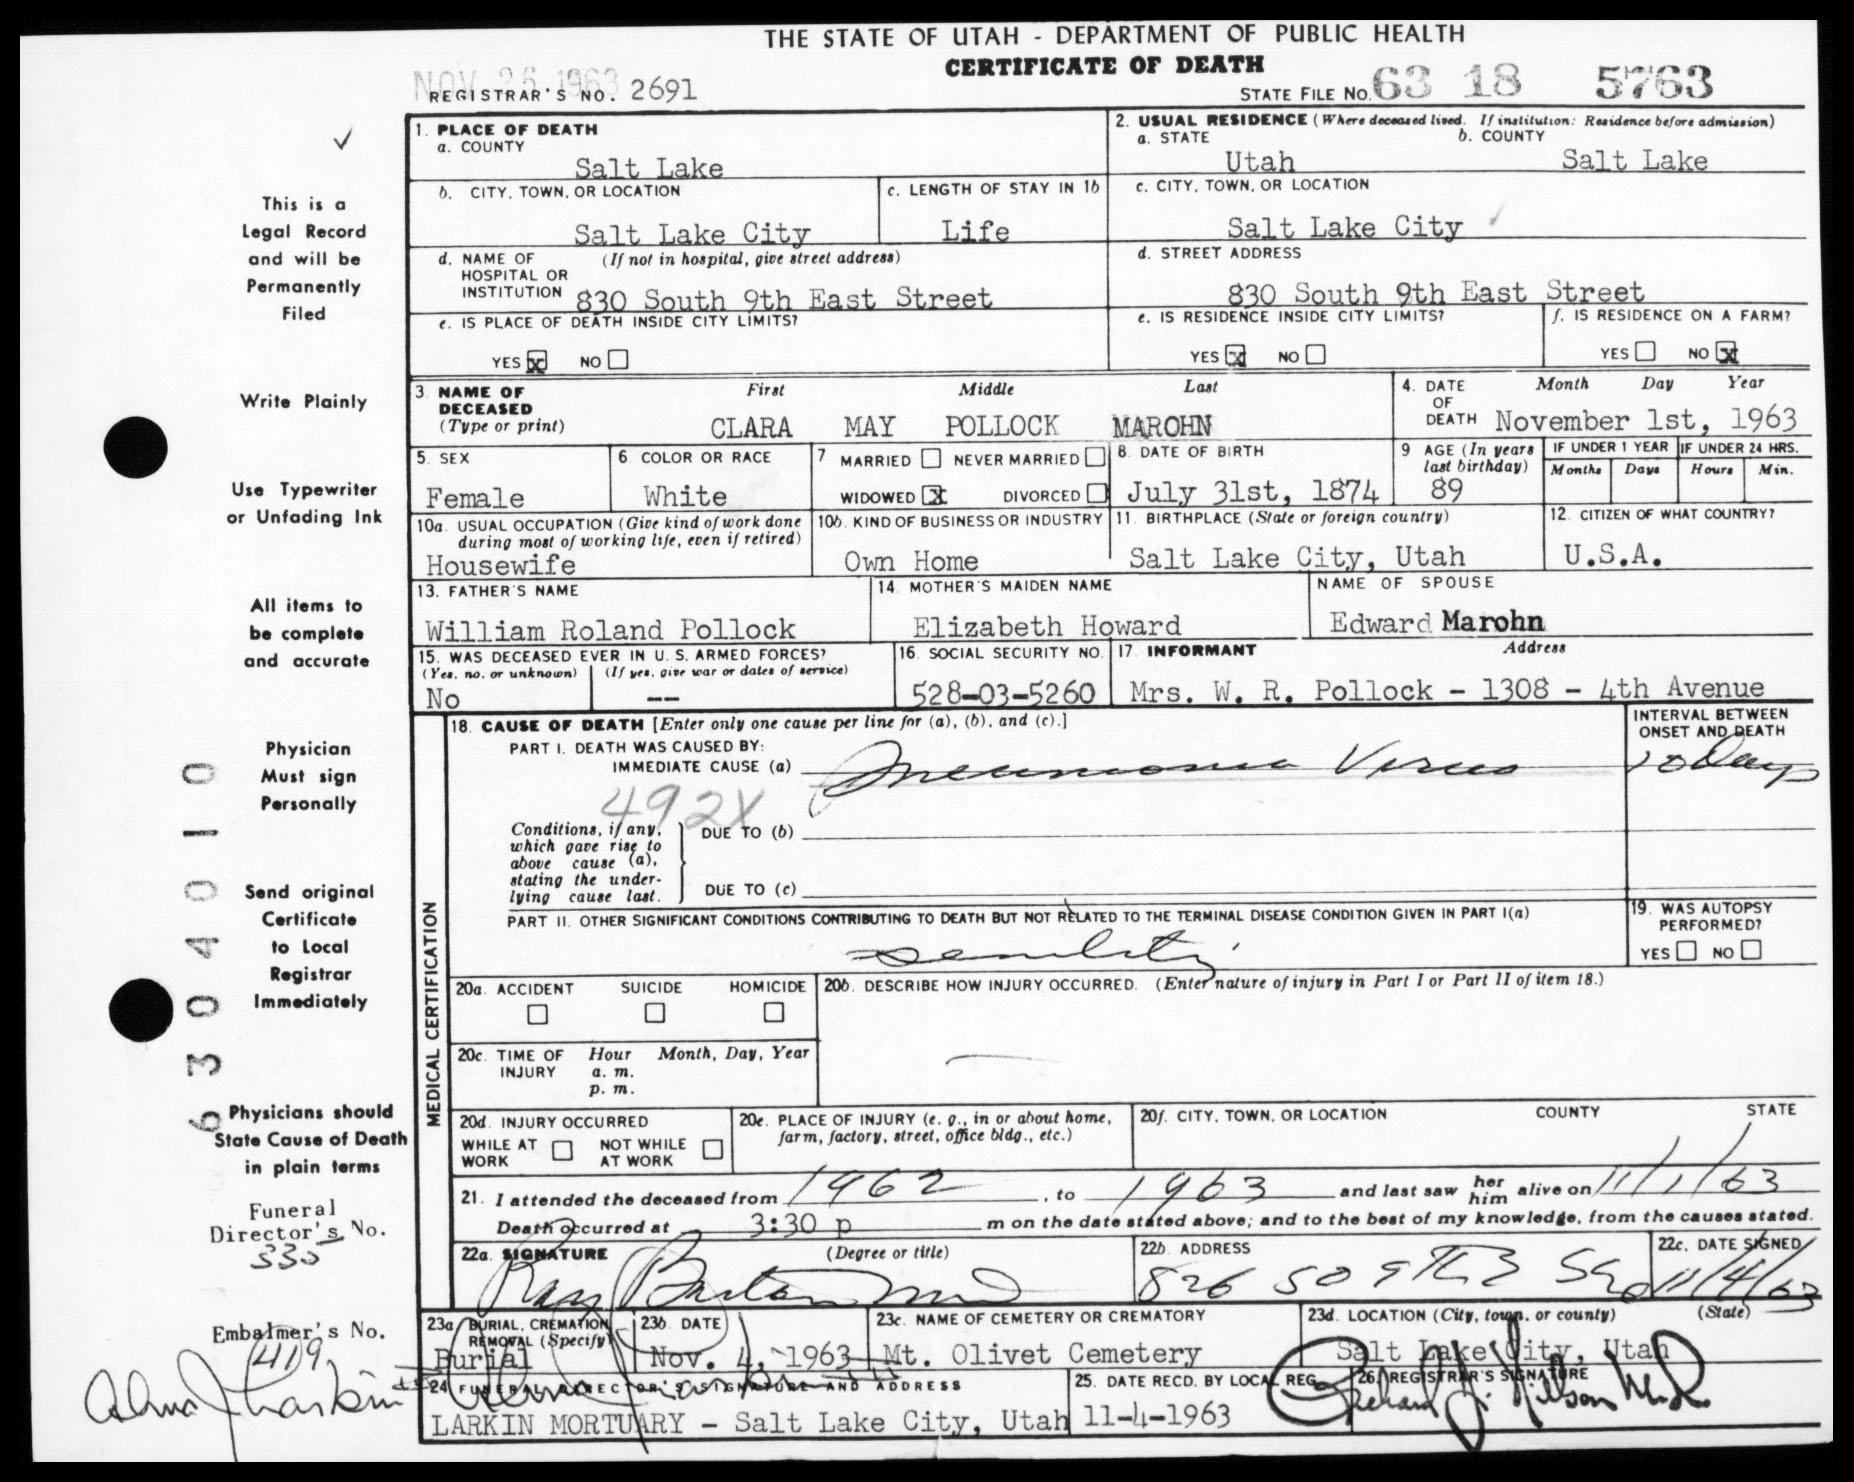 THE STATE OF UTAH - DEPARTMENT OF PUBLIC HEALTH
CERTIFICATE OF DEATH
NOV 26 1963
REGISTRAR'S NO. 2691
STATE FILE NO. 63 18 5763
1. PLACE OF DEATH
a. COUNTY
Salt Lake
2. USUAL RESIDENCE (Where deceased lived. If institution: Residence before admission)
a. STATE b. COUNTY
Utah Salt Lake
b. CITY, TOWN, OR LOCATION
Salt Lake City
c. LENGTH OF STAY IN 1b
Life
c. CITY, TOWN, OR LOCATION
Salt Lake City
d. NAME OF HOSPITAL OR INSTITUTION (If not in hospital, give street address)
830 South 9th East Street
d. STREET ADDRESS
830 South 9th East Street
e. IS PLACE OF DEATH INSIDE CITY LIMITS?
YES X NO
e. IS RESIDENCE INSIDE CITY LIMITS?
YES X NO
f. IS RESIDENCE ON A FARM?
YES NO X
3. NAME OF DECEASED (Type or print)
First Middle Last
CLARA MAY POLLOCK MAROHN
4. DATE OF DEATH
Month Day Year
November 1st, 1963
5. SEX
Female
6. COLOR OR RACE
White
7 MARRIED NEVER MARRIED
WIDOWED X DIVORCED
8. DATE OF BIRTH
July 31st, 1874
9 AGE (In years last birthday)
89
IF UNDER 1 YEAR
Months Days
IF UNDER 24 HRS.
Hours Min.
10a. USUAL OCCUPATION (Give kind of work done during most of working life, even if retired)
Housewife
10b. KIND OF BUSINESS OR INDUSTRY
Own Home
11. BIRTHPLACE (State or foreign country)
Salt Lake City, Utah
12. CITIZEN OF WHAT COUNTRY?
U.S.A.
13. FATHER'S NAME
William Roland Pollock
14. MOTHER'S MAIDEN NAME
Elizabeth Howard
NAME OF SPOUSE
Edward Marohn
15. WAS DECEASED EVER IN U. S. ARMED FORCES?
(Yes, no, or unknown) (If yes, give war or dates of service)
No --
16. SOCIAL SECURITY NO.
528-03-5260
17. INFORMANT Address
Mrs. W. R. Pollock - 1308 - 4th Avenue
MEDICAL CERTIFICATION
18. CAUSE OF DEATH [Enter only one cause per line for (a), (b), and (c).]
INTERVAL BETWEEN ONSET AND DEATH
PART I. DEATH WAS CAUSED BY:
IMMEDIATE CAUSE (a) Pneumonia Virus 10 Days
492X
Conditions, if any, which gave rise to above cause (a), stating the underlying cause last.
DUE TO (b)
DUE TO (c)
PART II. OTHER SIGNIFICANT CONDITIONS CONTRIBUTING TO DEATH BUT NOT RELATED TO THE TERMINAL DISEASE CONDITION GIVEN IN PART I(a)
Senility
19. WAS AUTOPSY PERFORMED?
YES NO
20a. ACCIDENT SUICIDE HOMICIDE
20b. DESCRIBE HOW INJURY OCCURRED. (Enter nature of injury in Part I or Part II of item 18.)
20c. TIME OF INJURY Hour Month, Day, Year
a. m.
p. m.
20d. INJURY OCCURRED
WHILE AT WORK NOT WHILE AT WORK
20e. PLACE OF INJURY (e. g., in or about home, farm, factory, street, office bldg., etc.)
20f. CITY, TOWN, OR LOCATION COUNTY STATE
21. I attended the deceased from 1962, to 1963 and last saw her him alive on 11/1/63
Death occurred at 3:30 p m on the date stated above; and to the best of my knowledge, from the causes stated.
22a. SIGNATURE (Degree or title)
Ray Barton MD
22b. ADDRESS
826 So 9th E
22c. DATE SIGNED
11/4/63
23a BURIAL, CREMATION, REMOVAL (Specify)
Burial
23b. DATE
Nov. 4, 1963
23c. NAME OF CEMETERY OR CREMATORY
Mt. Olivet Cemetery
23d. LOCATION (City, town, or county) (State)
Salt Lake City, Utah
24 FUNERAL DIRECTOR'S SIGNATURE AND ADDRESS
LARKIN MORTUARY - Salt Lake City, Utah
25. DATE RECD. BY LOCAL REG.
11-4-1963
26. REGISTRAR'S SIGNATURE
Richard J. Nilson M.D.
This is a
Legal Record
and will be
Permanently
Filed
Write Plainly
Use Typewriter
or Unfading Ink
All items to
be complete
and accurate
Physician
Must sign
Personally
Send original
Certificate
to Local
Registrar
Immediately
Physicians should
State Cause of Death
in plain terms
Funeral
Director's No.
335
Embalmer's No.
419
Alma J Larkin
6304010